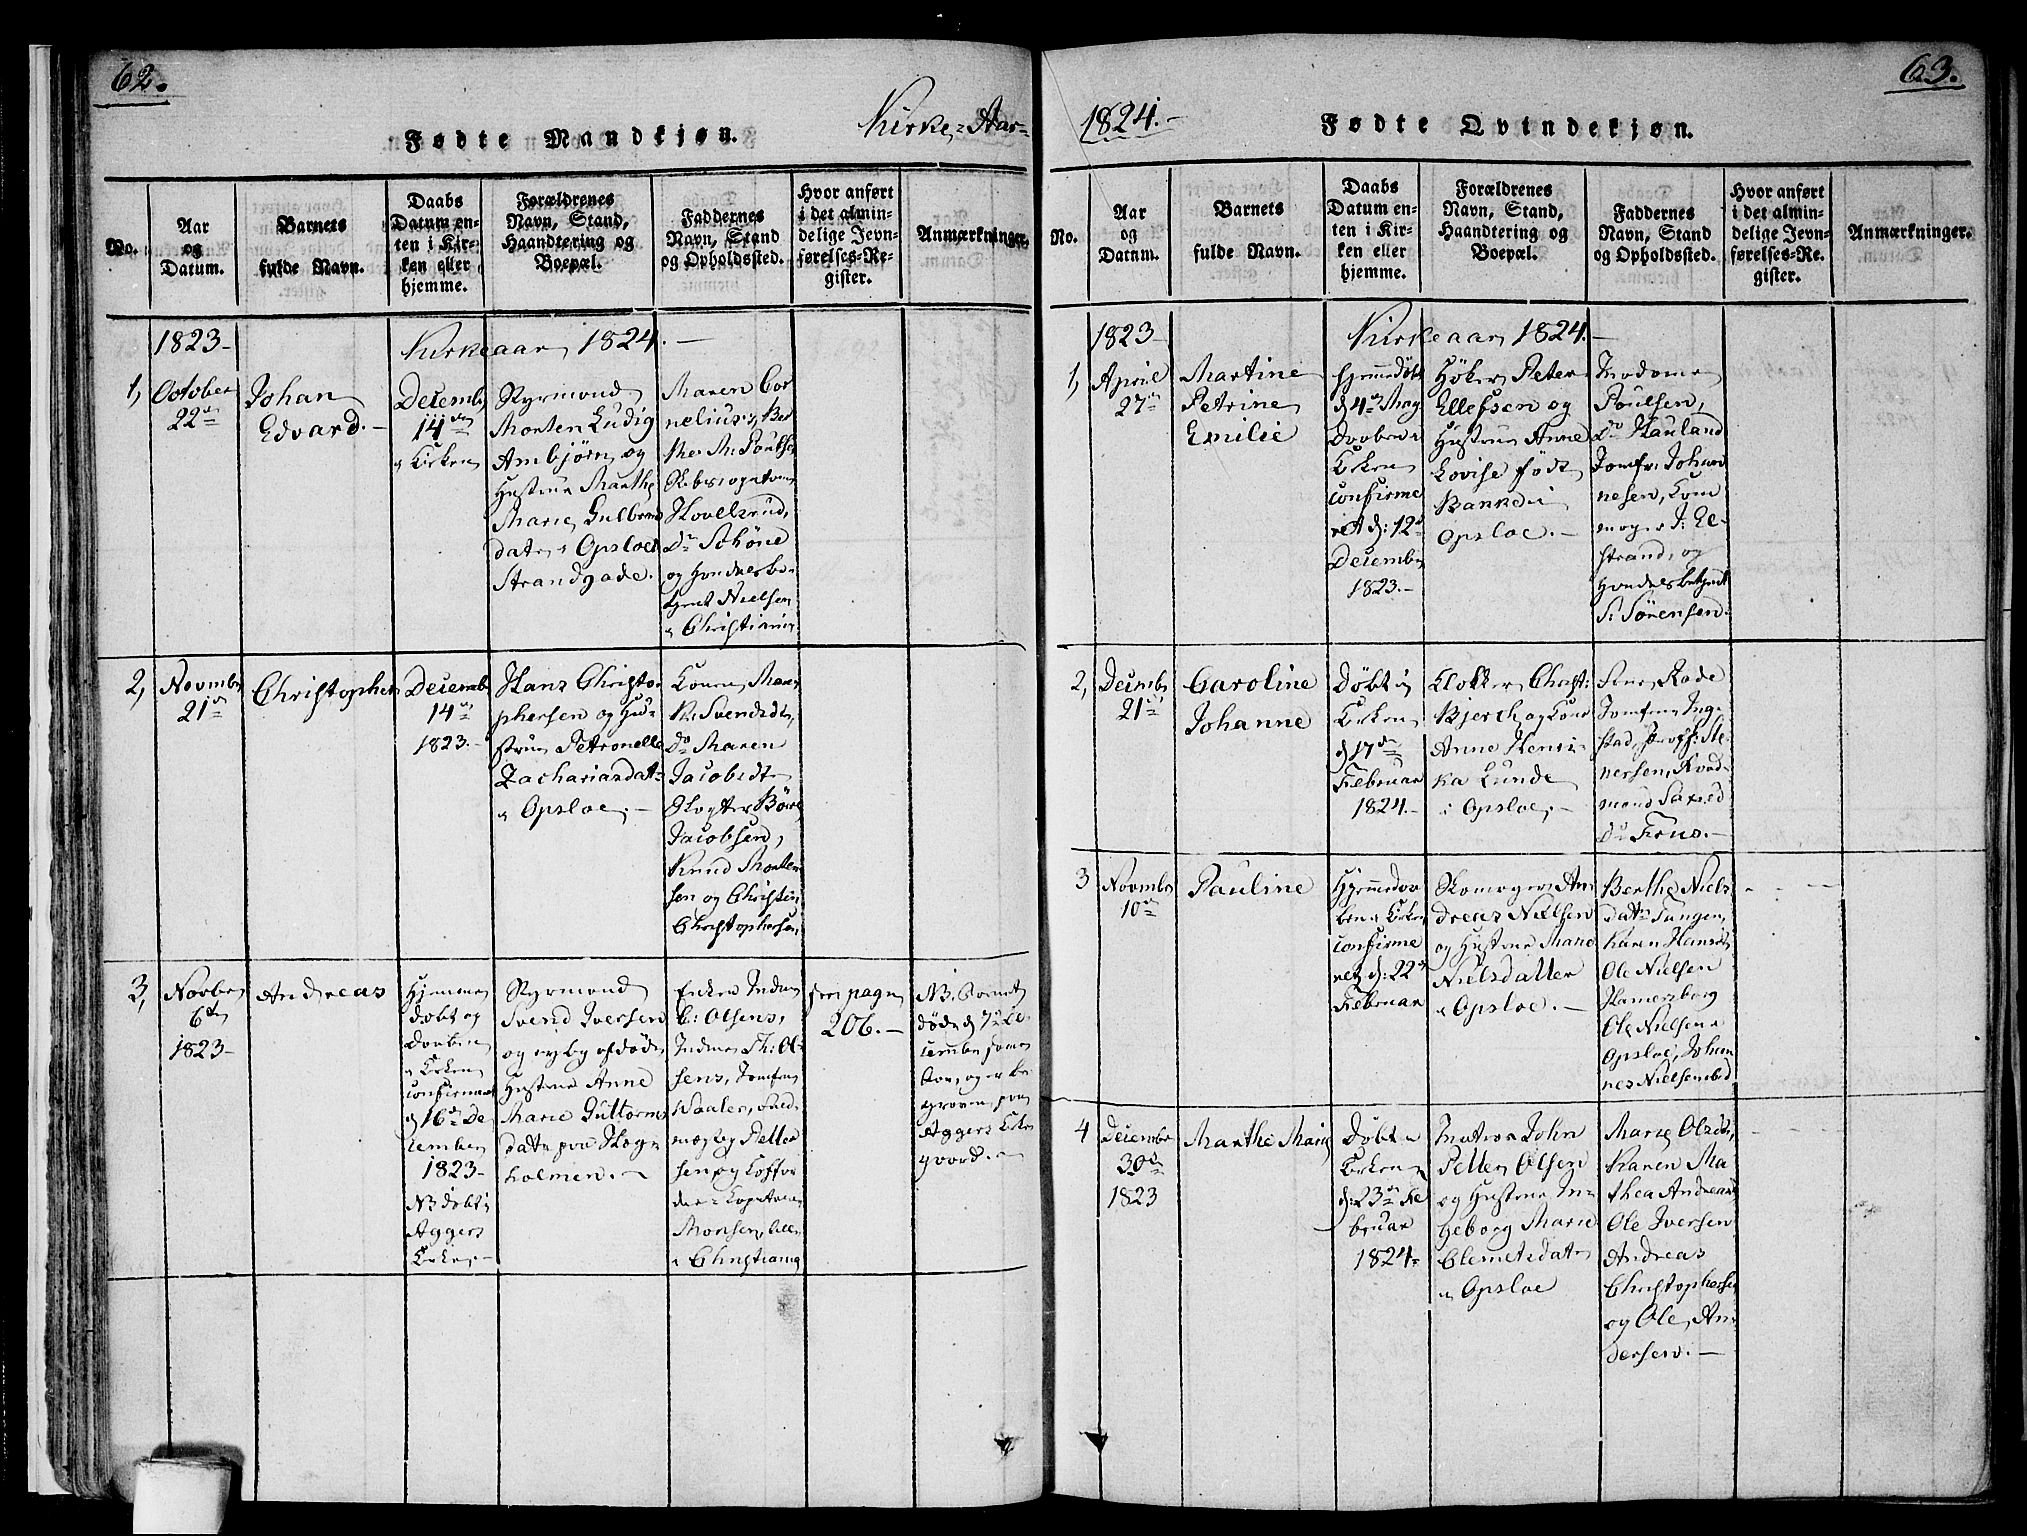 62.
Kirke-Aar-
Fødte Mandkjøn.
No.
Aar
og
Datum.
Barnets
fulde Navn.
Daabs
Datum en-
ten i Kir-
ken eller
hjemme.
Forældrenes
Navn, Stand,
Haandtering og
Boepæl.
Faddernes
Navn, Stand
og Opholdssted.
Hvor anført
i det almin-
delige Jevn-
førelses-Re-
gister.
Anmærkninger.
1823-
Kirkeaar 1824.-
1,
October
22de
Johan
Edvard.-
Decemb
14de
i Kirken
Morten Ludig
Ambjørn og
Hustrue Marthe
Marie Gulbrands
datr i Opsloe
Strandgade.
Maren Cor
nelius:
Hovelsrud,
Do Schøne
og Handelsbe-
tjent Nielsen
i Christiania
2,
Novmbr
21de
Christopher
Decembr
14de
1823.-
Hans Christo-
phersen og Hu-
strue Petronelle
Zachariasdatr
i Opsloe.-
Konen Maren
Svendsdtr,
Do Maren
Jacobsdtr
Jacobsen,
Knud Morten
sen og Christen
Christophersen
3,
Novbr
6te
1823-
Andreas
Hjemme
døbt og
Daaben
i Kirken
confirmeret
d 16de De
cember
1823-
NB døbt i
Aggers
Kirke.-
Svend Iversen
og nylig afdøde
Hustrue Anne
Marie Guttorms
datr paa Hog-
holmen.-
Enken Madm
Olsens,
Madme Th: Ol-
sens, Jomfru
Waaler,
Petter
sen og Coffar
die-Capitain
Monsen, alle
i Christiania
see pagn
206.-
NB. Barnet
døde d 7de De-
cember samme
Aar, og er be
graven paa
Aggers Kirke
gaard.-
63.
1824.-
Fødte Qvindekjøn.
No.
Aar
og
Datum.
Barnets
fulde Navn.
Daabs
Datum en-
ten i Kir-
ken eller
hjemme.
Forældrenes
Navn, Stand,
Haandtering og
Boepæl.
Faddernes
Navn, Stand
og Opholdssted.
Hvor anført
i det almin-
delige Jevn-
førelses-Re-
gister.
Anmærkninger.
1823-
Kirkeaar 1824.-
1,
April
27de
Martine
Petrine
Emilie
Hjemmedøbt
d 4de May
Daaben i
Kirken
confirme
ret d: 12te
Decembr
1823.-
Høker Peter
Ellefsen og
Hustrue Anne
Lovise født
Banke i
Opsloe.-
Madame
Poulsen,
Do Hauland
Jomfr: Johan
nesen, Skoe
mager J: Ee-
strand, og
Handelsbetjent
S: Sørensen.
2,
Decmbr
21de
Caroline
Johanne
Døbt i
Kirken
d 17de
Februar
1824.-
Klokker Christ:
Bjerch og Kone
Anne Henri-
ka Lunde
i Opsloe.-
Rode
Jomfrue Ing-
stad,
nersen,
3
Novmbr
10de
Pauline
Hjemmedaa
ben i Kirken
confirme
ret d: 22de
Februar
Skomager An-
dreas Nielsen
og Hustrue Marie
Nielsdatter
i Opsloe.-
Berthe Niels
datr Tangen,
Karen Hansdtr
Ole Nielsen
Hamersborg
Ole Nielsen i
Opsloe, Johan
nes Nielsen ibid
4
Decembr
30te
1823
Marthe Marie
Døbt i
Kirken
d: 23de Fe
bruar
1824-
Matros John
Petter Olsen
og Hustrue In-
geborg Marie
Clemetsdatr
i Opsloe
Marie Olsdtr,
Karen Ma
thea Andreasd
Ole Iversen
Andreas
Christophersen
og Ole An
dersen.-